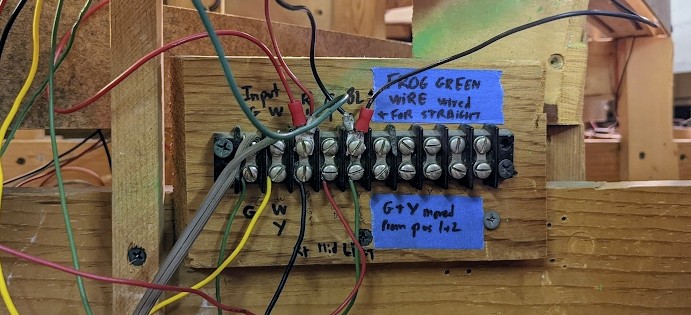 Input
W R BL
FROG GREEN
WIRE wired
+ FOR STRAIGHT
G W
Y
G+Y moved
From pos 1+2